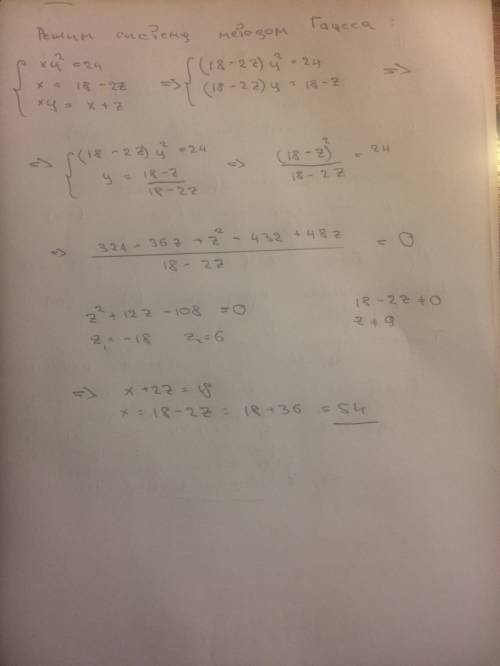 Решим систему методом Гаусса :
{ xy² = 24 x = 18 - 2z xy = x + z => { (18 - 2z) y² = 24 (18 - 2z) y = 18 - z =>
=> { (18 - 2z) y² = 24 y = (18 - z)/(18 - 2z) => (18 - z)²/(18 - 2z) = 24
=> (324 - 36z + z² - 432 + 48z)/(18 - 2z) = 0
z² + 12z - 108 = 0 18 - 2z ≠ 0
z₁ = -18 z₂ = 6 z ≠ 9
=> x + 2z = 18
x = 18 - 2z = 18 + 36 = 54